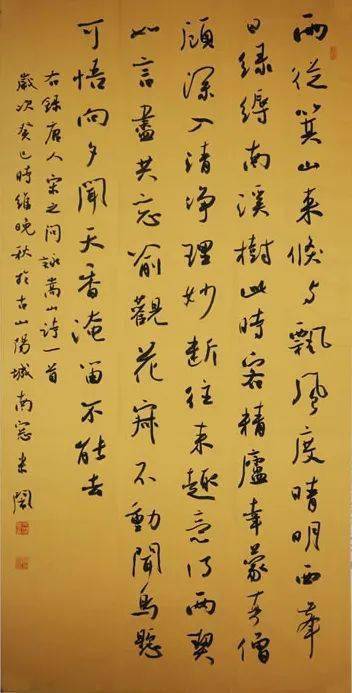 雨從箕山来倏与飄風度晴明西峯
日綠縟南溪樹此時客精廬幸蒙真僧
顧深入清净理妙斷往来趣意得两契
如言盡共忘喻觀花寂不動聞鳥懸
可悟向夕聞天香淹留不能去
右録唐人宋之問詠嵩山诗一首
歲次癸巳時維晚秋於古山陽城南窓